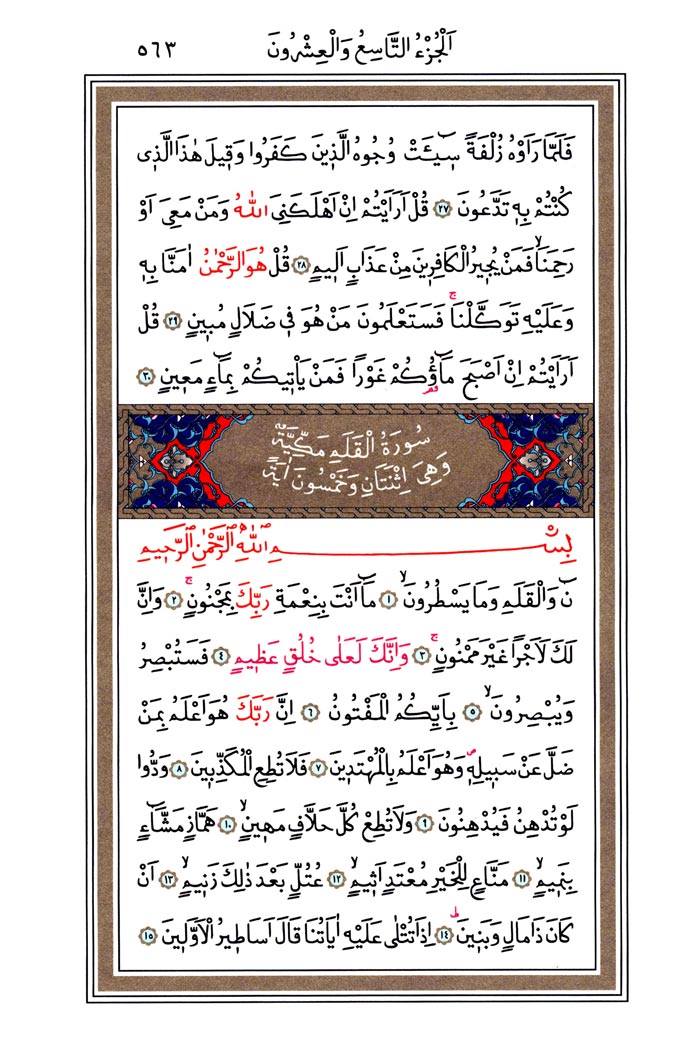 اَلْجُزْءُ التَّاسِعُ وَالْعِشْرُونَ ٥٦٣
فَلَمَّا رَاَوْهُ زُلْفَةً سٖٓيـَٔتْ وُجُوهُ الَّذٖينَ كَفَرُوا وَقٖيلَ هٰذَا الَّذٖى
كُنْتُمْ بِهٖ تَدَّعُونَ ٢٧ قُلْ اَرَاَيْتُمْ اِنْ اَهْلَكَنِىَ اللّٰهُ وَمَنْ مَعِىَ اَوْ
رَحِمَنَاۙ فَمَنْ يُجٖيرُ الْكَافِرٖينَ مِنْ عَذَابٍ اَلٖيمٍ ٢٨ قُلْ هُوَ الرَّحْمٰنُ اٰمَنَّا بِهٖ
وَعَلَيْهِ تَوَكَّلْنَاۚ فَسَتَعْلَمُونَ مَنْ هُوَ فٖى ضَلَالٍ مُبٖينٍ ٢٩ قُلْ
اَرَاَيْتُمْ اِنْ اَصْبَحَ مَٓاؤُ۬كُمْ غَوْراً فَمَنْ يَاْتٖيكُمْ بِمَٓاءٍ مَعٖينٍ ٣٠
سُورَةُ الْقَلَمِ مَكِّيَّةٌ
وَهِىَ اِثْنَتَانِ وَخَمْسُونَ اٰيَةً
بِسْمِ اللّٰهِ الرَّحْمٰنِ الرَّحٖيمِ
نٓ وَالْقَلَمِ وَمَا يَسْطُرُونَۙ ١ مَٓا اَنْتَ بِنِعْمَةِ رَبِّكَ بِمَجْنُونٍۚ ٢ وَاِنَّ
لَكَ لَاَجْراً غَيْرَ مَمْنُونٍۚ ٣ وَاِنَّكَ لَعَلٰى خُلُقٍ عَظٖيمٍ ٤ فَسَتُبْصِرُ
وَيُبْصِرُونَۙ ٥ بِاَيِّكُمُ الْمَفْتُونُ ٦ اِنَّ رَبَّكَ هُوَ اَعْلَمُ بِمَنْ
ضَلَّ عَنْ سَبٖيلِهٖۖ وَهُوَ اَعْلَمُ بِالْمُهْتَدٖينَ ٧ فَلَا تُطِعِ الْمُكَذِّبٖينَ ٨ وَدُّوا
لَوْ تُدْهِنُ فَيُدْهِنُونَ ٩ وَلَا تُطِعْ كُلَّ حَلَّافٍ مَهٖينٍۙ ١٠ هَمَّازٍ مَشَّٓاءٍ
بِنَمٖيمٍۙ ١١ مَنَّاعٍ لِلْخَيْرِ مُعْتَدٍ اَثٖيمٍۙ ١٢ عُتُلٍّ بَعْدَ ذٰلِكَ زَنٖيمٍۙ ١٣ اَنْ
كَانَ ذَا مَالٍ وَبَنٖينَۜ ١٤ اِذَا تُتْلٰى عَلَيْهِ اٰيَاتُنَا قَالَ اَسَاطٖيرُ الْاَوَّلٖينَ ١٥